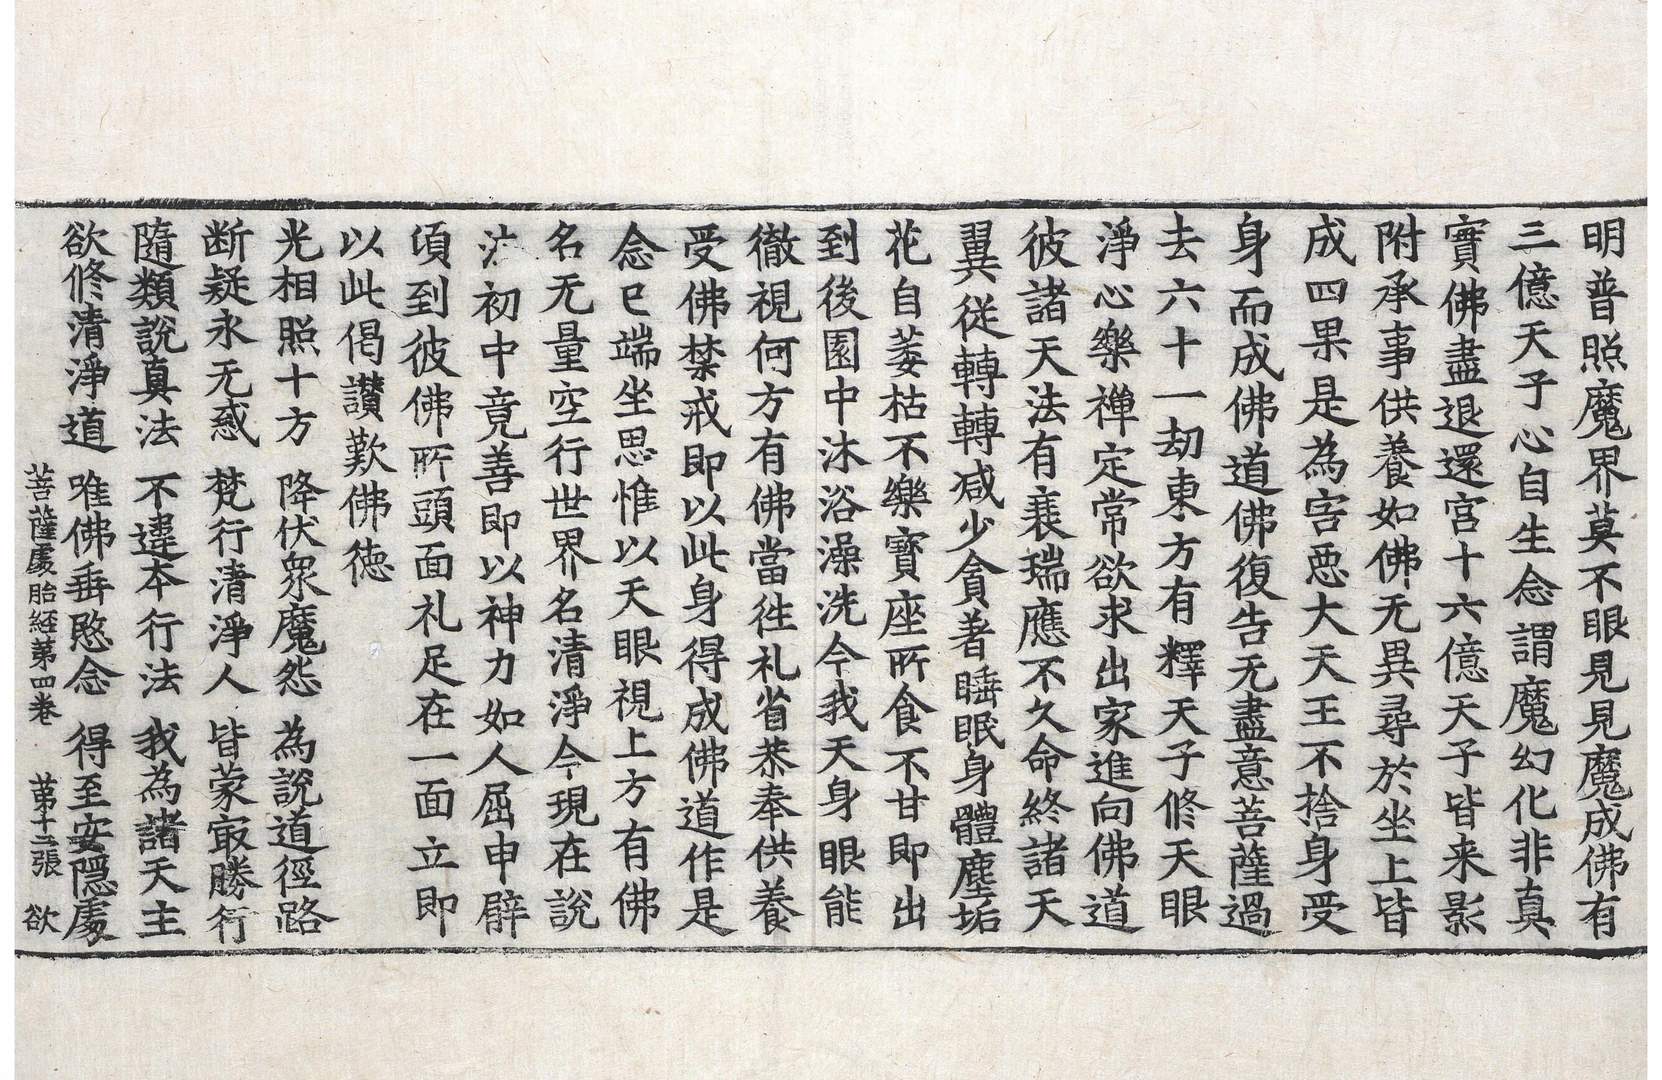 明普照魔界莫不眼見見魔成佛有
三億天子心自生念謂魔幻化非真
實佛盡退還宮十六億天子皆来影
附承事供養如佛无異尋於坐上皆
成四果是為害惡大天王不捨身受
身而成佛道佛復告无盡意菩薩過
去六十一劫東方有釋天子修天眼
淨心樂禪定常欲求出家進向佛道
彼諸天法有衰瑞應不久命終諸天
翼從轉轉減少貪著睡眠身體塵垢
花自萎枯不樂寶座所食不甘即出
到後園中沐浴澡洗今我天身眼能
徹視何方有佛當往礼省恭奉供養
受佛禁戒即以此身得成佛道作是
念已端坐思惟以天眼視上方有佛
名无量空行世界名清淨今現在說
法初中竟善即以神力如人屈申臂
頃到彼佛所頭面礼足在一面立即
以此偈讃歎佛德
光相照十方 降伏衆魔怨 為說道徑路
断疑永无惑 梵行清淨人 皆蒙最勝行
隨類說真法 不違本行法 我為諸天主
欲修清淨道 唯佛垂愍念 得至安隱處
菩薩處胎経苐四卷 苐十二張 欲